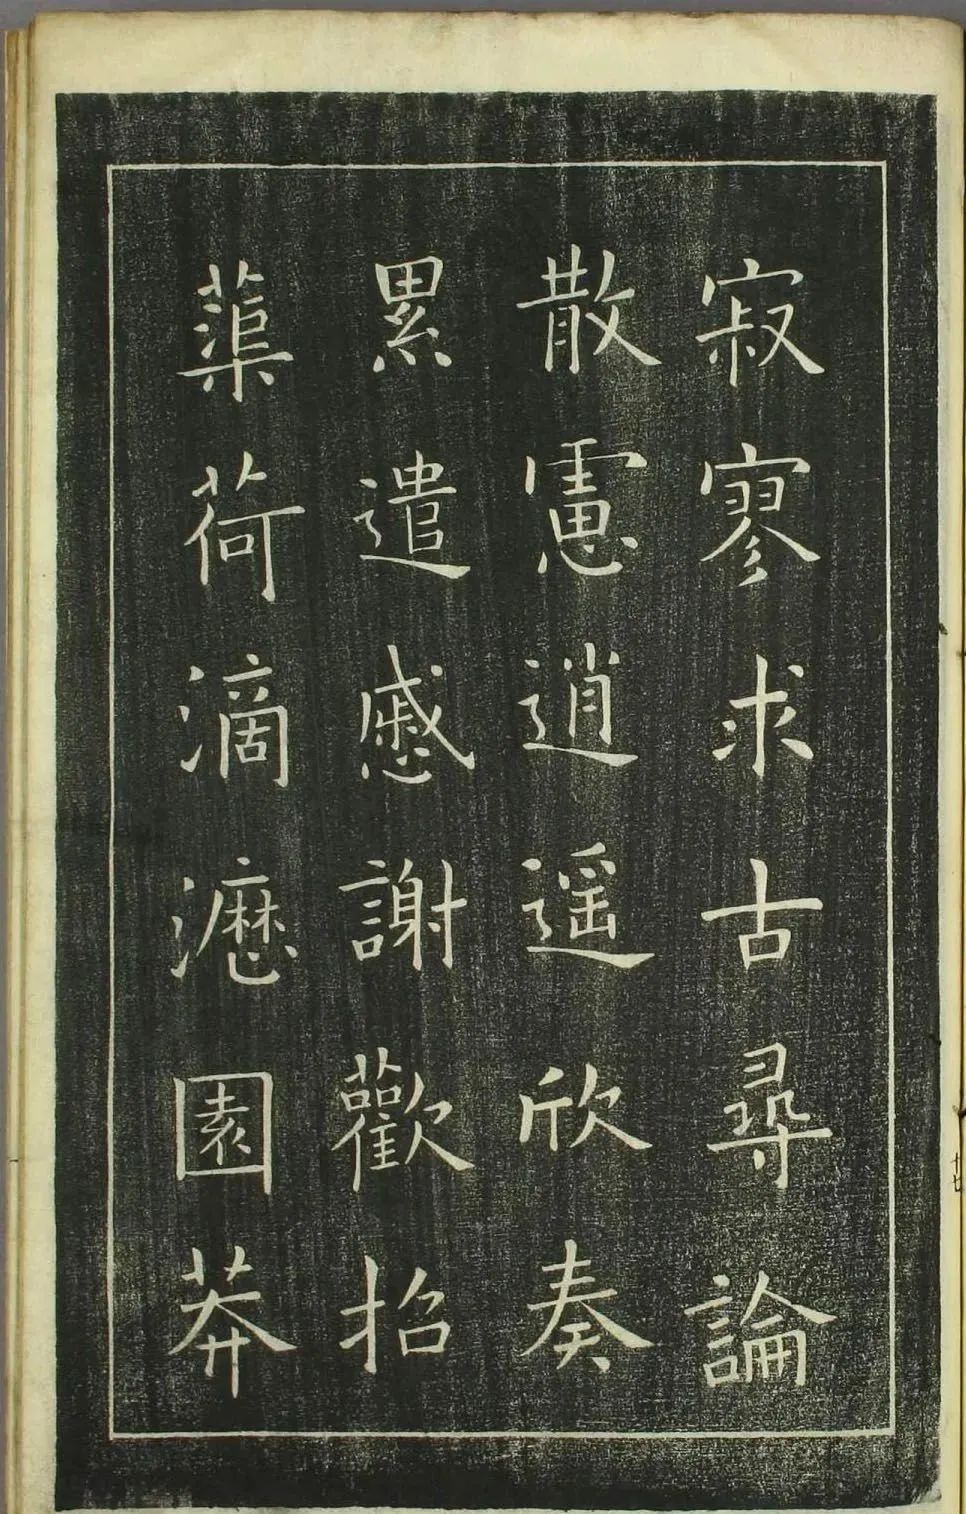 寂寥求古尋論
散慮逍遥欣奏
累遣慼謝歡招
蕖荷滴瀝園莽
十七